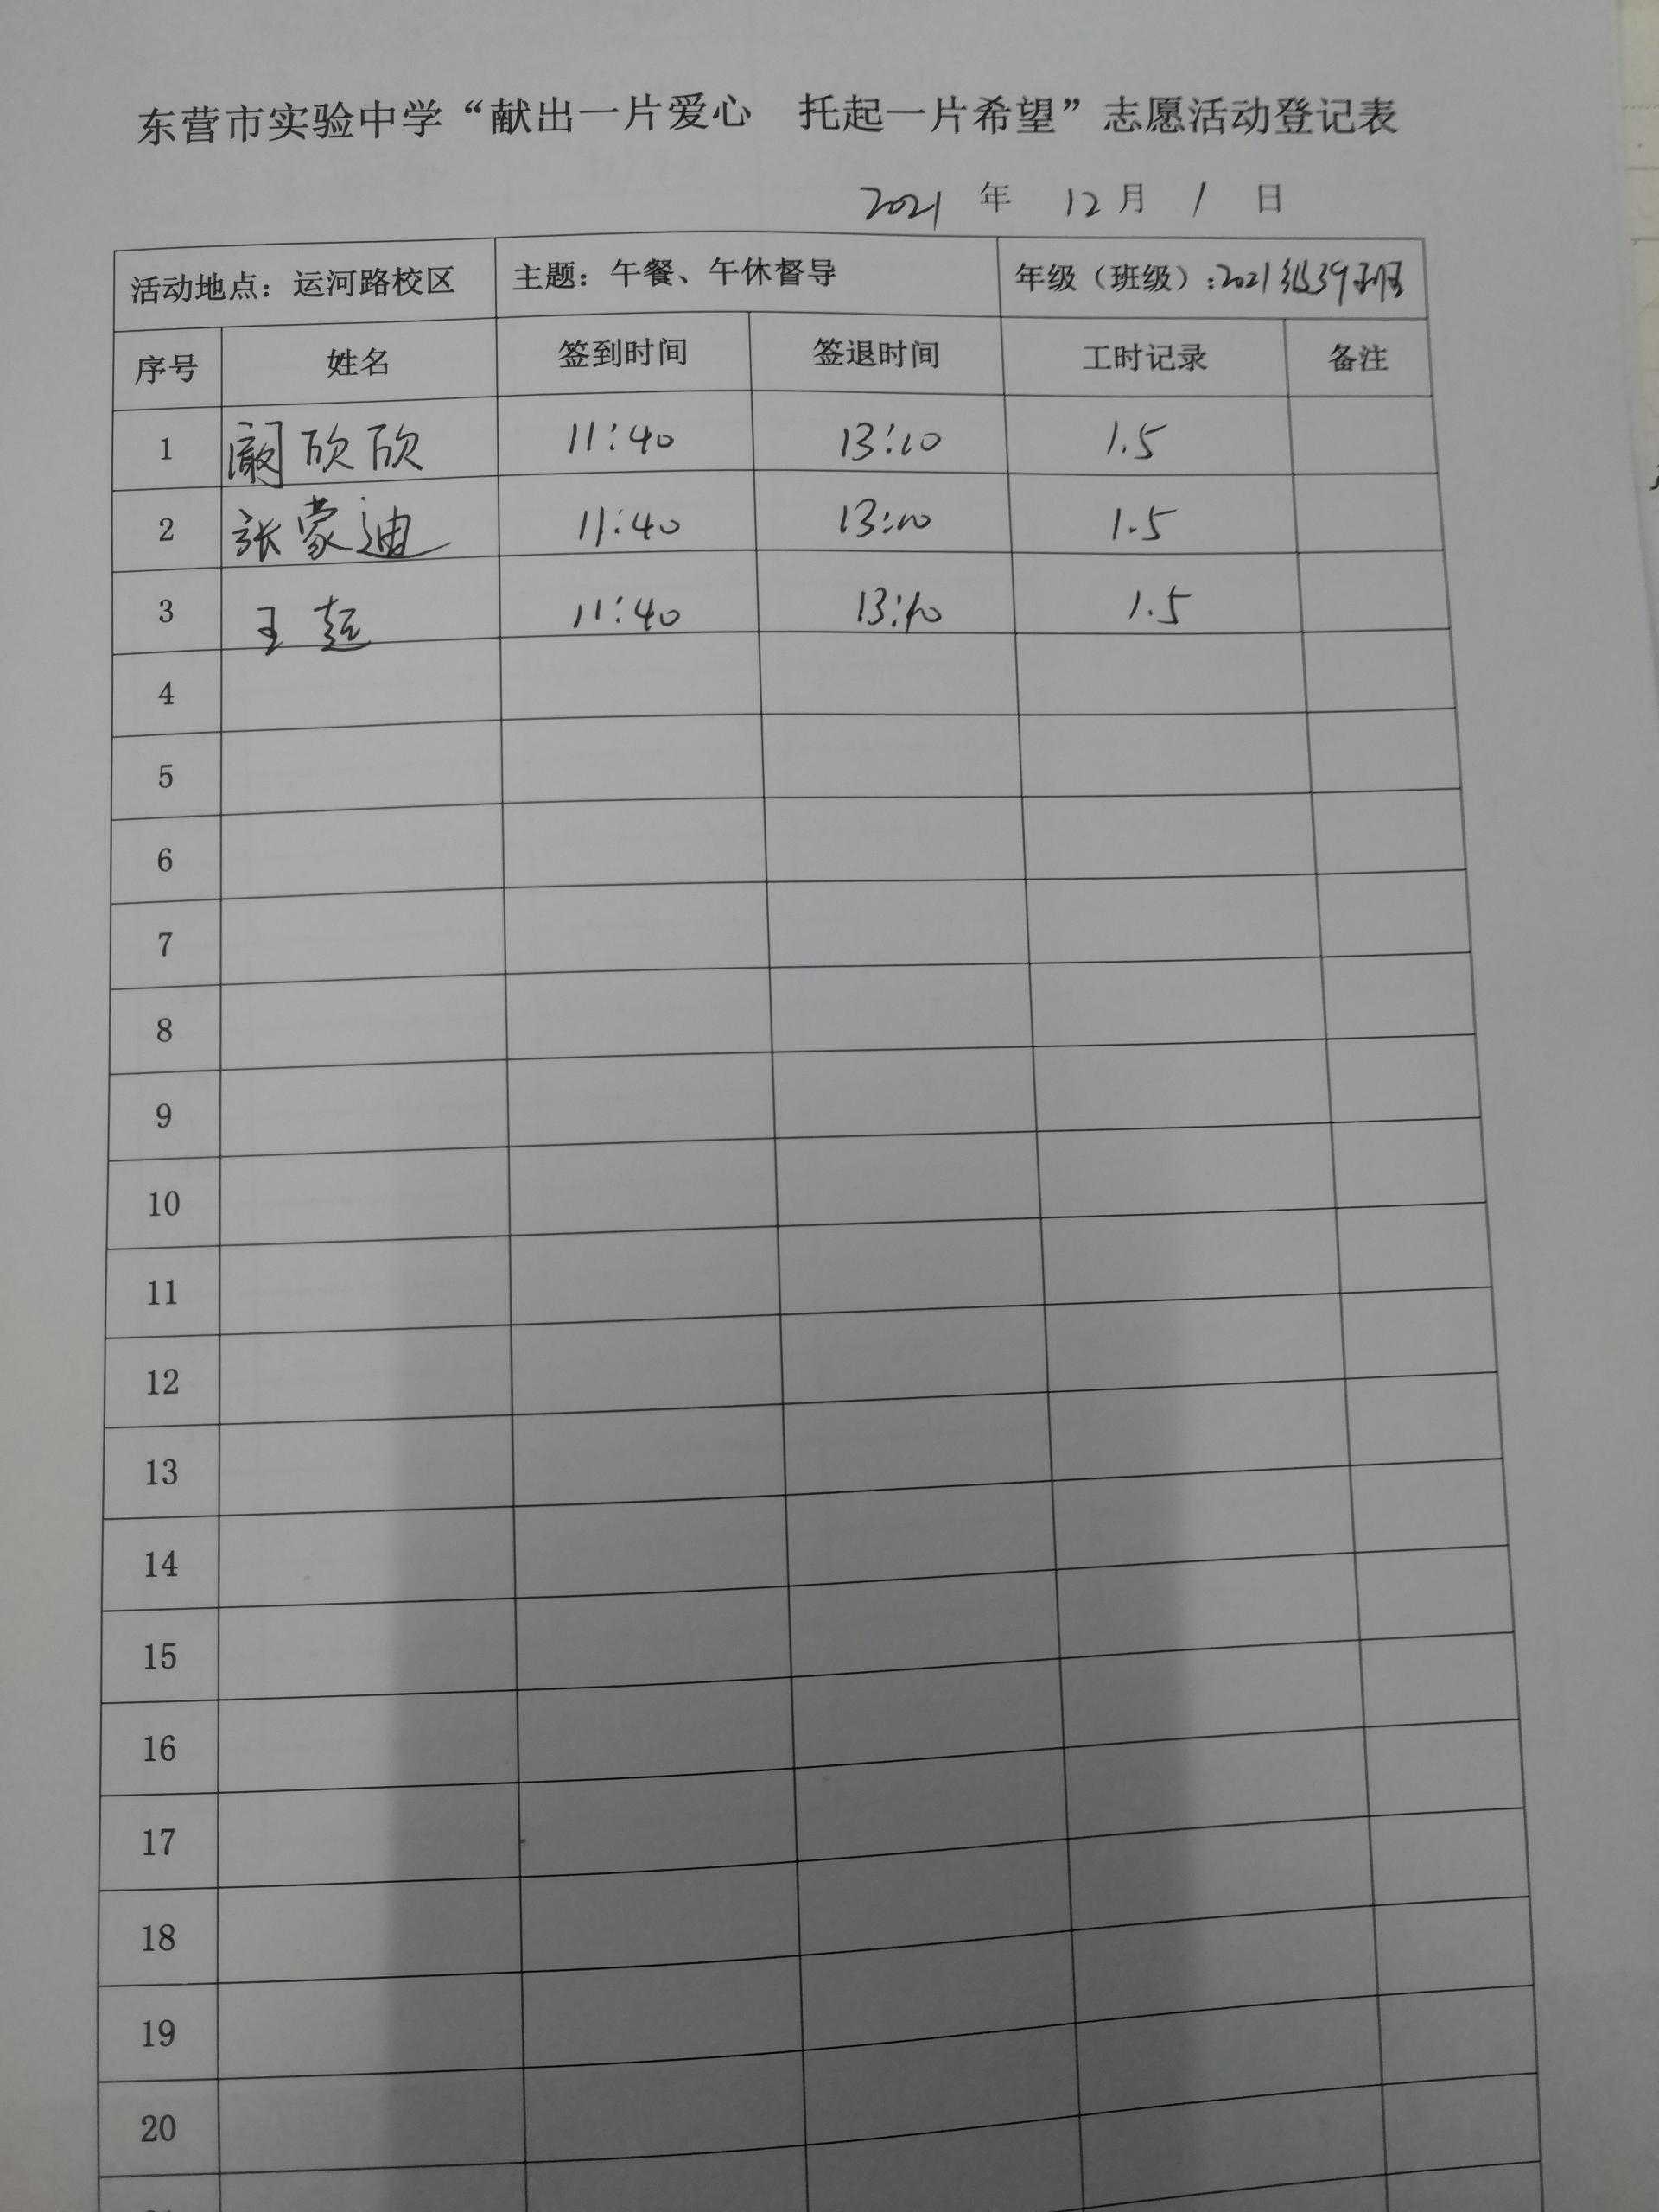 东营市实验中学“献出一片爱心 托起一片希望”志愿活动登记表
2021 年 12 月 1 日
活动地点：运河路校区 主题：午餐、午休督导 年级（班级）：2021级39班
序号 姓名 签到时间 签退时间 工时记录 备注
1 阚欣欣 11:40 13:10 1.5
2 张蒙迪 11:40 13:10 1.5
3 王超 11:40 13:10 1.5
4
5
6
7
8
9
10
11
12
13
14
15
16
17
18
19
20